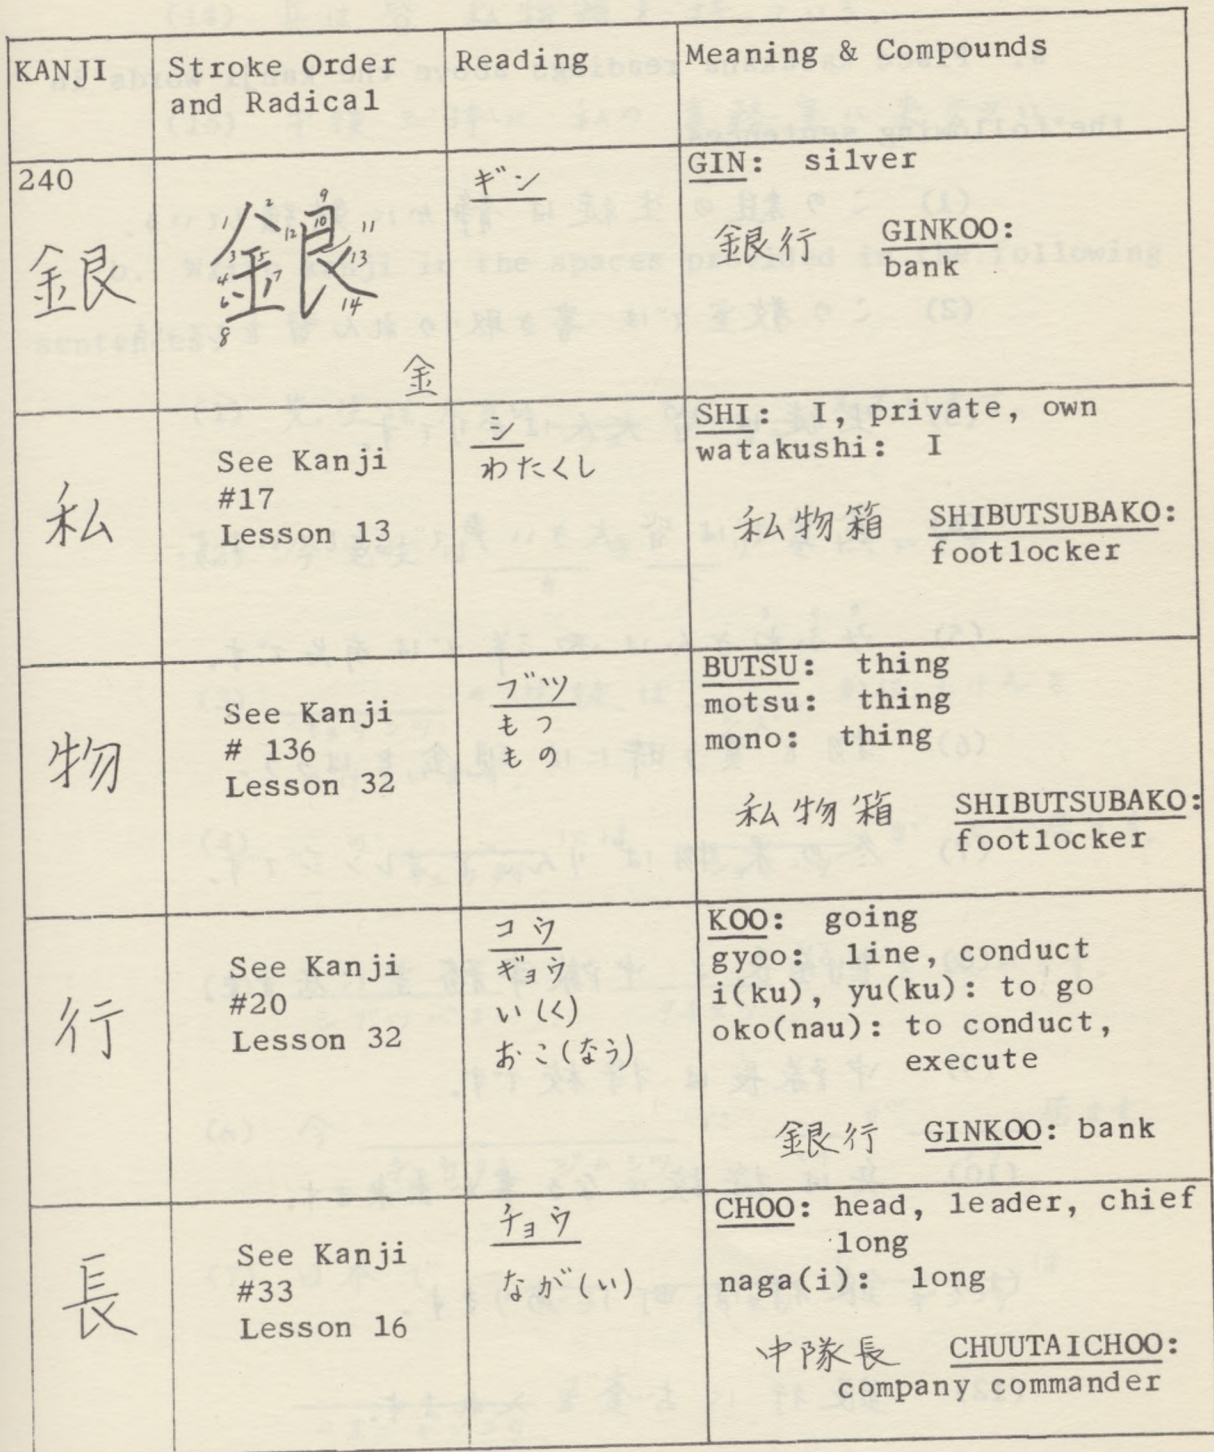 KANJI
Stroke Order
and Radical
Reading
Meaning & Compounds
240
銀
銀
1 2 3 4 5 6 7 8 9 10 11 12 13 14
金
ギン
GIN: silver
銀行 GINKOO:
bank
私
See Kanji
#17
Lesson 13
シ
わたくし
SHI: I, private, own
watakushi: I
私物箱 SHIBUTSUBAKO:
footlocker
物
See Kanji
# 136
Lesson 32
ブツ
もつ
もの
BUTSU: thing
motsu: thing
mono: thing
私物箱 SHIBUTSUBAKO:
footlocker
行
See Kanji
#20
Lesson 32
コウ
ギョウ
い(く)
おこ(なう)
KOO: going
gyoo: line, conduct
i(ku), yu(ku): to go
oko(nau): to conduct,
execute
銀行 GINKOO: bank
長
See Kanji
#33
Lesson 16
チョウ
なが(い)
CHOO: head, leader, chief
long
naga(i): long
中隊長 CHUUTAICHOO:
company commander